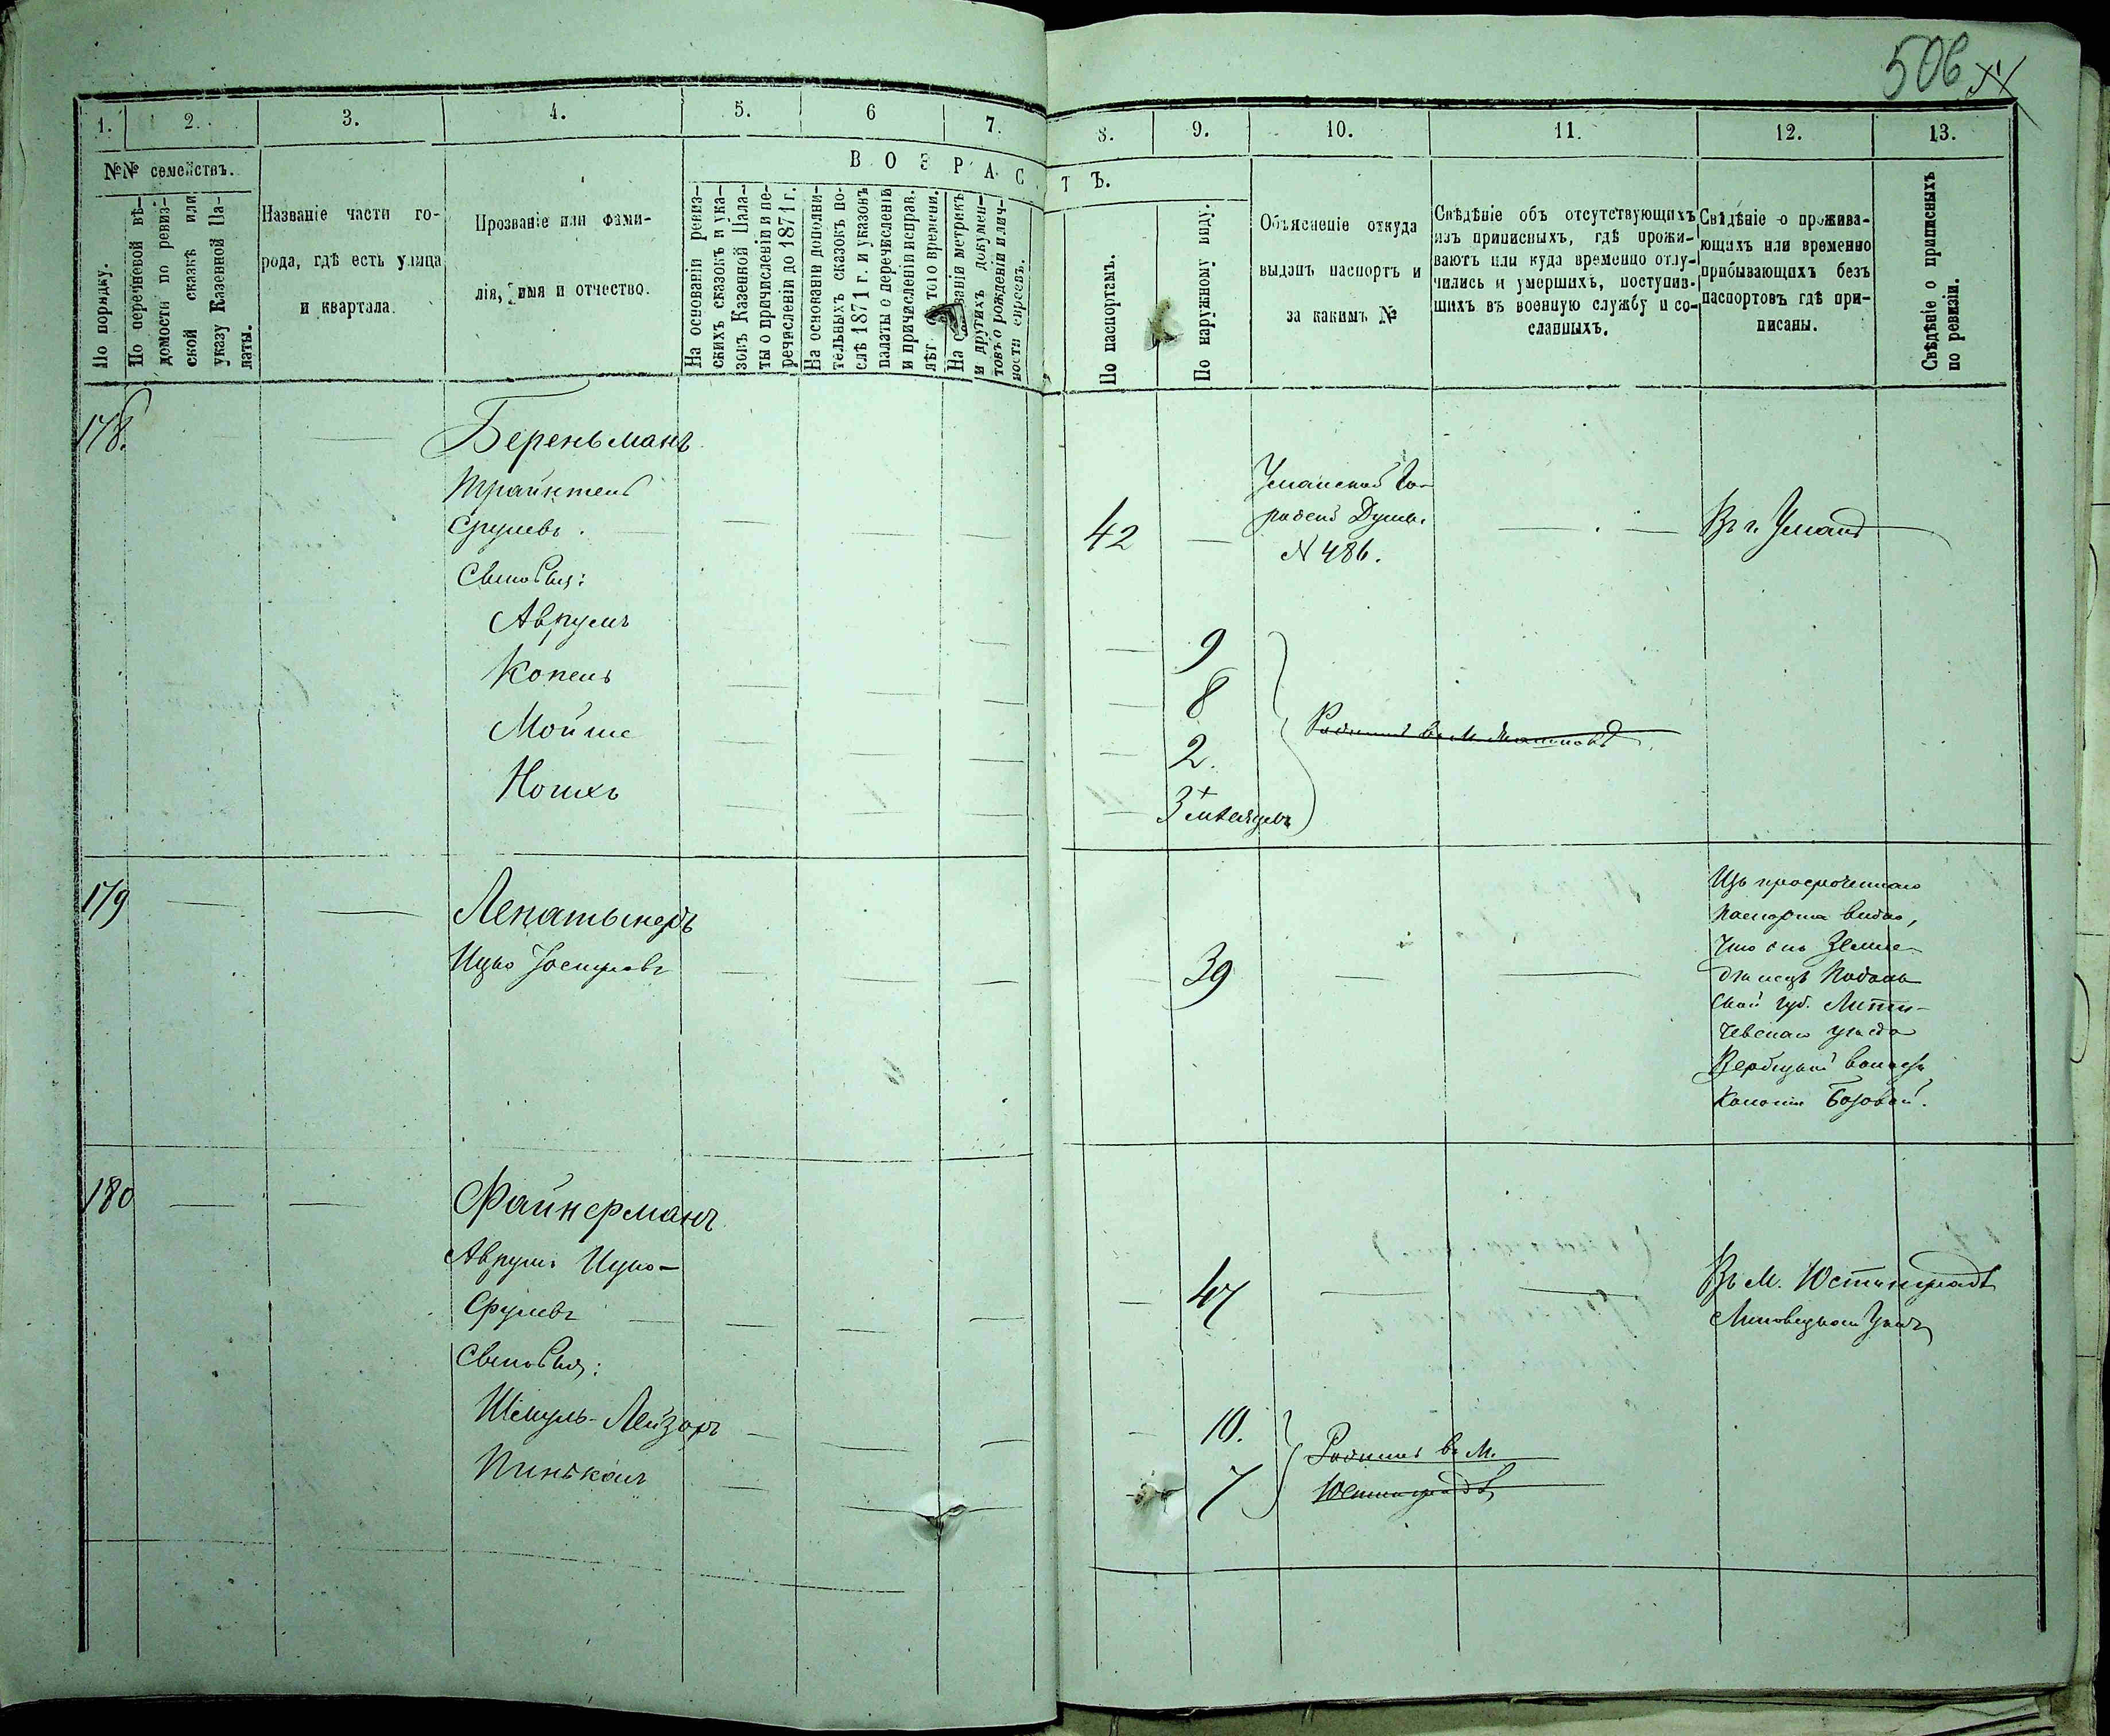 506
1. 2. 3. 4. 5. 6 7. 8. 9. 10. 11. 12. 13.
№№ семействъ.
По порядку.
По перечневой вѣ-
домости по ревиз-
ской сказкѣ или
указу Казенной Па-
латы.
Названіе части го-
рода, гдѣ есть улица
и квартала.
Прозваніе или фами-
лія, имя и отчество.
ВОЗРАСТЪ.
На основаніи ревиз-
скихъ сказокъ и ука-
зовъ Казенной Пала-
ты о причисленіи и пе-
речисленіи до 1871 г.
На основаніи дополни-
тельныхъ сказокъ по-
слѣ 1871 г. и указовъ
палаты о перечисленіи
и причисленіи исправ.
лѣт того времени.
На основаніи метрикъ
и другихъ докумен-
товъ о рожденіи и лич-
ности евреевъ.
По паспортамъ.
По наружному виду.
Объясненіе откуда
выданъ паспортъ и
за какимъ №
Свѣдѣніе объ отсутствующихъ
изъ приписныхъ, гдѣ прожи-
ваютъ или куда временно отлу-
чились и умершихъ, поступив-
шихъ въ военную службу и со-
сланныхъ.
Свѣдѣніе о прожива-
ющихъ или временно
прибывающихъ безъ
паспортовъ гдѣ при-
писаны.
Свѣдѣніе о приписныхъ
по ревизіи.
178.
Береньманъ
Срулевъ.
Сыновья:
Аврумъ
Копель
Мойше
Ноихъ
42
Уманской Го-
родской Думы.
N 486.
Въ г. Умани
9
8
2.
3 мѣсяцевъ
Родились въ М.
179
Ицко Иосиповъ
39
Изъ просроченнаго
паспорта видно,
что онъ Земле-
дѣлецъ Подоль
ской губ. Лети-
чевскаго уѣзда
Вербецкой волости
Колоніи
180
Файнерманъ
Аврумъ Ицко-
Срулевъ
Сыновья:
Шмуль-Лейзоръ
Пинькасъ
47
Въ М. Юстинградѣ
Липовецкаго Уѣзд
10.
7
Родились въ М.
Юстинградѣ